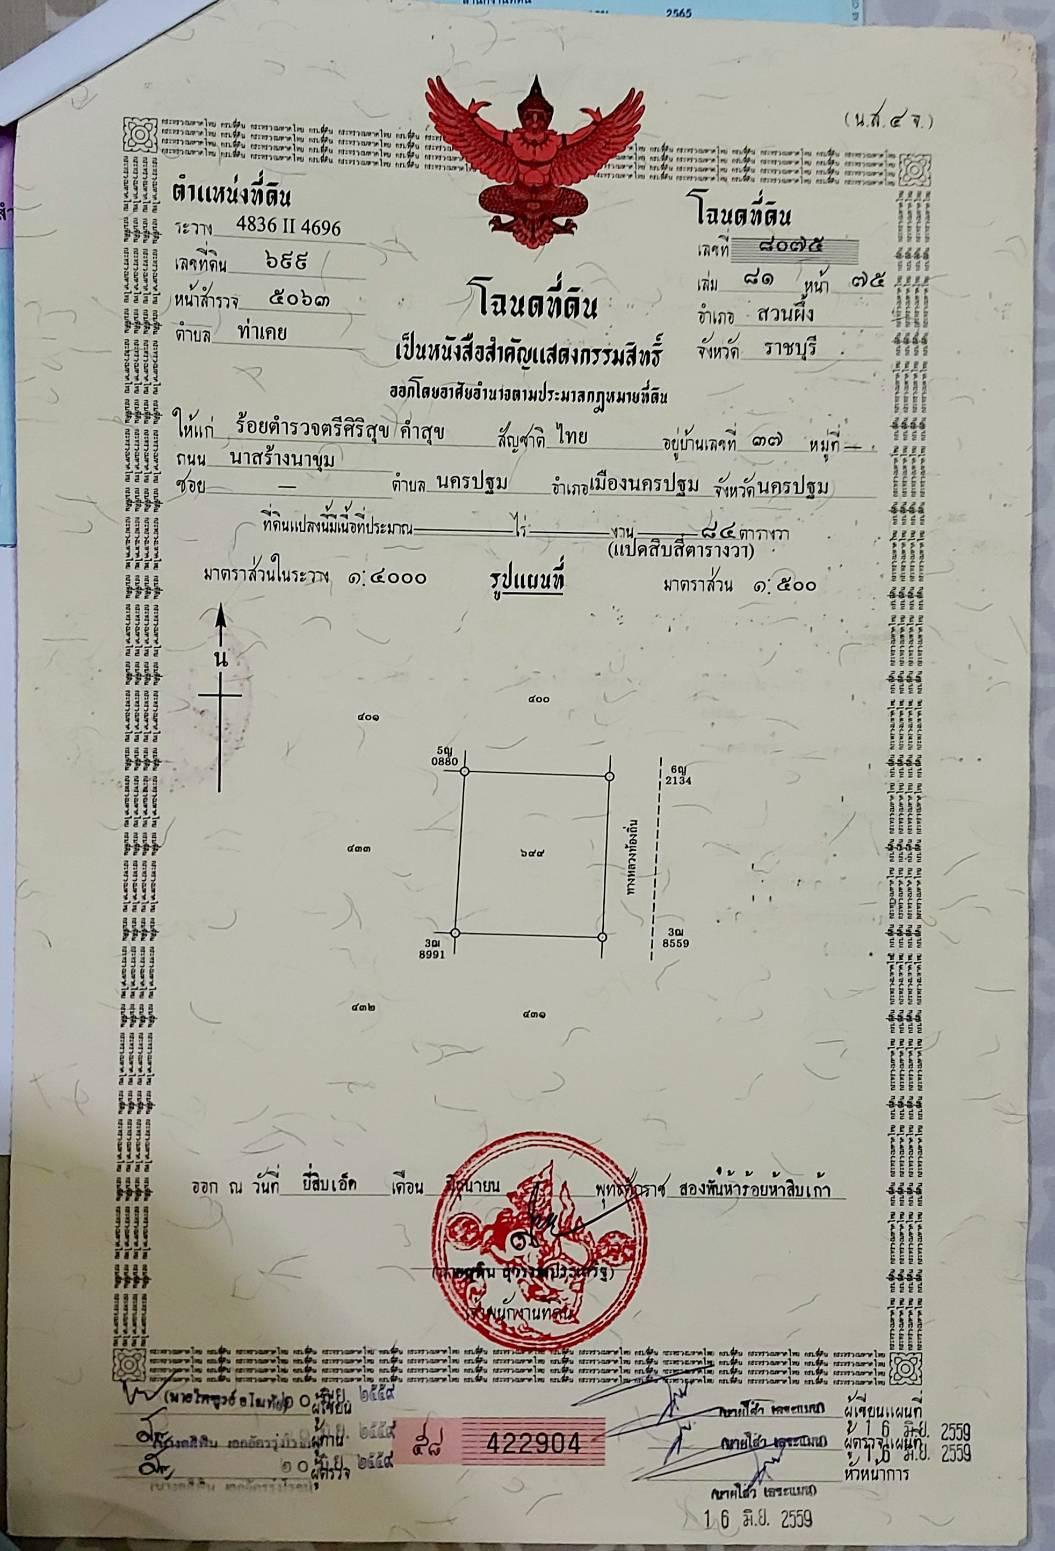 2565
(น.ส.๔ จ.)
ตำแหน่งที่ดิน
ระวาง 4836 II 4696
เลขที่ดิน ๖๙๙
หน้าสำรวจ ๕๐๖๓
ตำบล ท่าเคย
โฉนดที่ดิน
เลขที่ ๘๐๗๕
เล่ม ๘๑ หน้า ๗๕
อำเภอ สวนผึ้ง
จังหวัด ราชบุรี
โฉนดที่ดิน
เป็นหนังสือสำคัญแสดงกรรมสิทธิ์
ออกโดยอาศัยอำนาจตามประมวลกฎหมายที่ดิน
ให้แก่ ร้อยตำรวจตรีศิริสุข คำสุข สัญชาติ ไทย อยู่บ้านเลขที่ ๓๗ หมู่ที่ —
ถนน นาสร้างนาขุม
ซอย — ตำบล นครปฐม อำเภอเมืองนครปฐม จังหวัดนครปฐม
ที่ดินแปลงนี้มีเนื้อที่ประมาณ — ไร่ — งาน — ๘๔ ตารางวา
(แปดสิบสี่ตารางวา)
มาตราส่วนในระวาง ๑:๔๐๐๐ รูปแผนที่ มาตราส่วน ๑:๕๐๐
น
๔๐๑ ๔๐๐
5ญ
0880
6ญ
2134
๔๓๓ ๖๙๙
ทางหลวงท้องถิ่น
3ฌ
8991
3ฌ
8559
๔๓๒ ๔๓๑
ออก ณ วันที่ ยี่สิบเอ็ด เดือน มิถุนายน พุทธศักราช สองพันห้าร้อยห้าสิบเก้า
เจ้าพนักงานที่ดิน
ผู้เขียน
ผู้ทาน
ผู้ตรวจ
๕๘ 422904
ผู้เขียนแผนที่
16 มิ.ย. 2559
ผู้ตรวจแผนที่
16 มิ.ย. 2559
หัวหน้าการ
16 มิ.ย. 2559